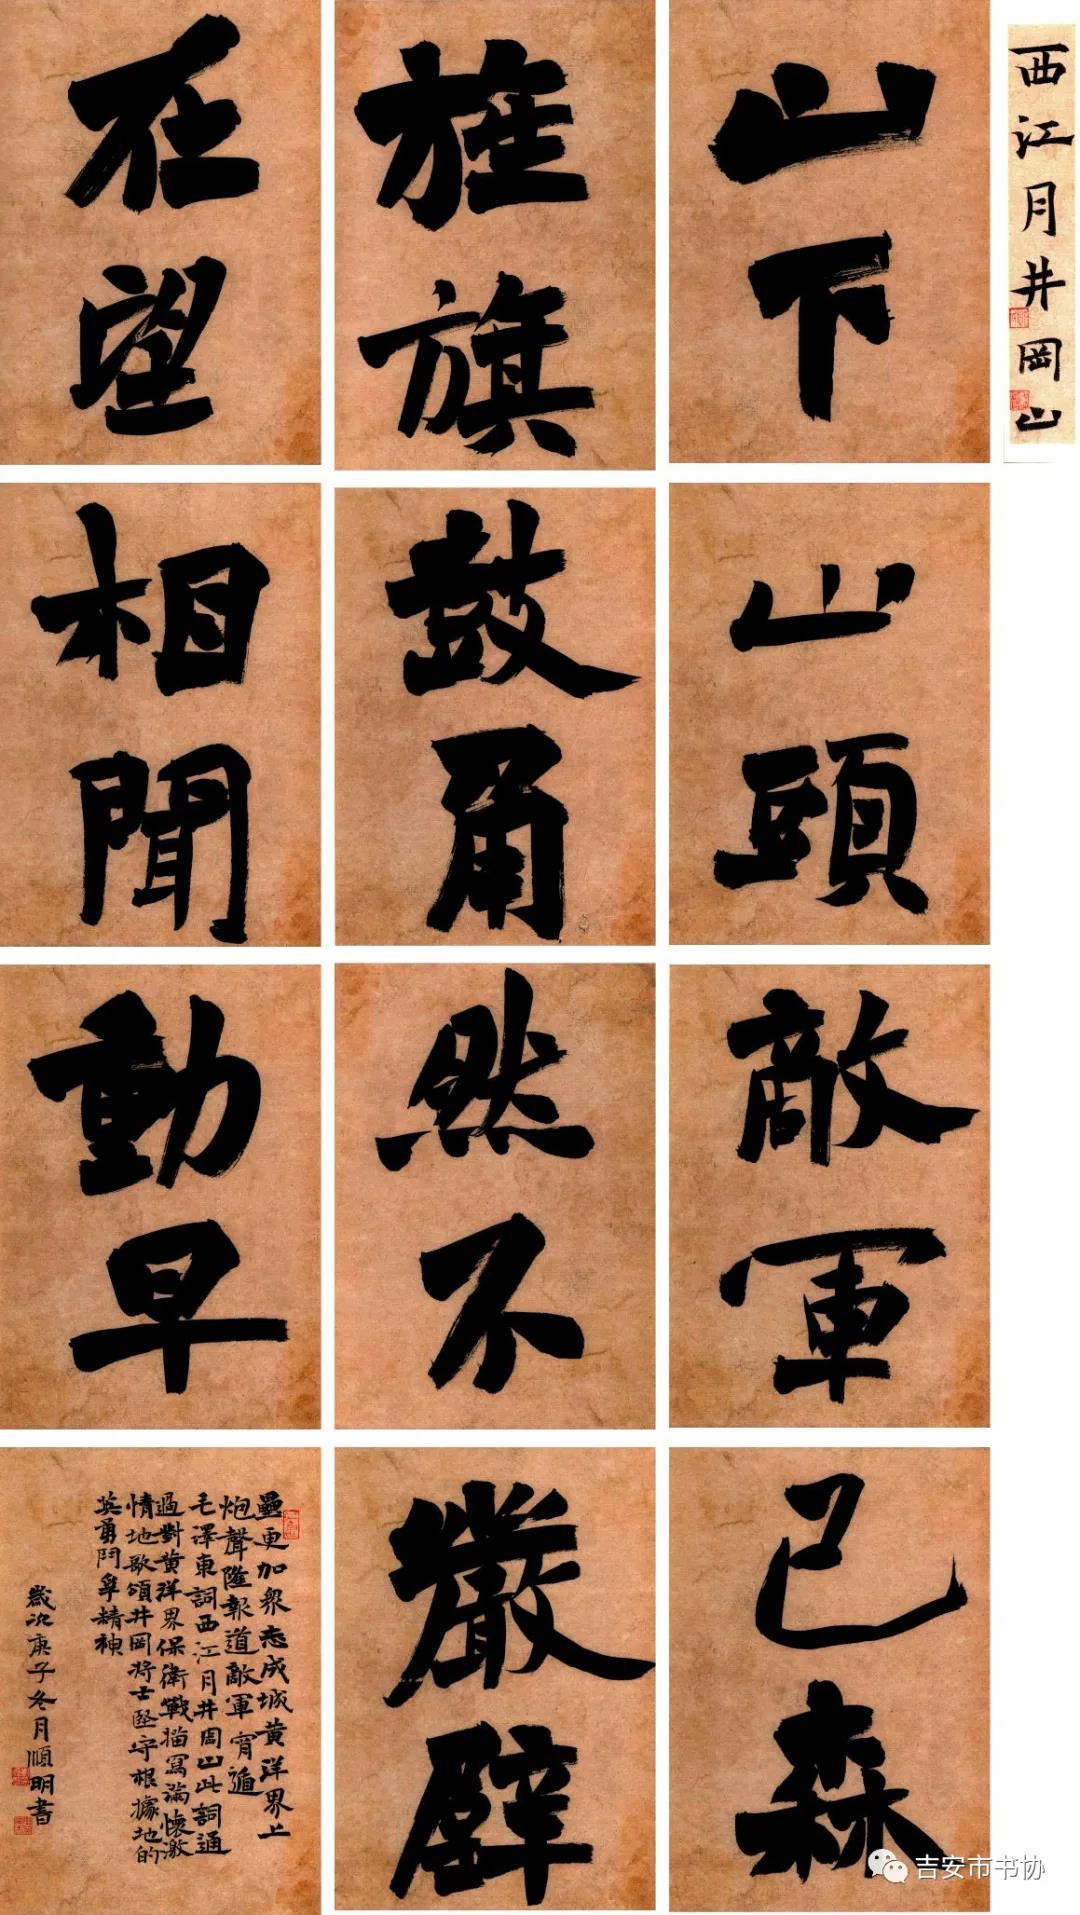 西江月井岡山
山下
旌旗
在望
山頭
鼓角
相聞
敵軍
然不
動早
已森
嚴壁
壘更加衆志成城黄洋界上
炮聲隆報道敵軍宵遁
毛澤東詞西江月井岡山此詞通
過對黄洋界保衛戰描寫滿懷激
情地歌頌井岡將士堅守根據地的
英勇鬥爭精神
歲次庚子冬月順明書
吉安市书协